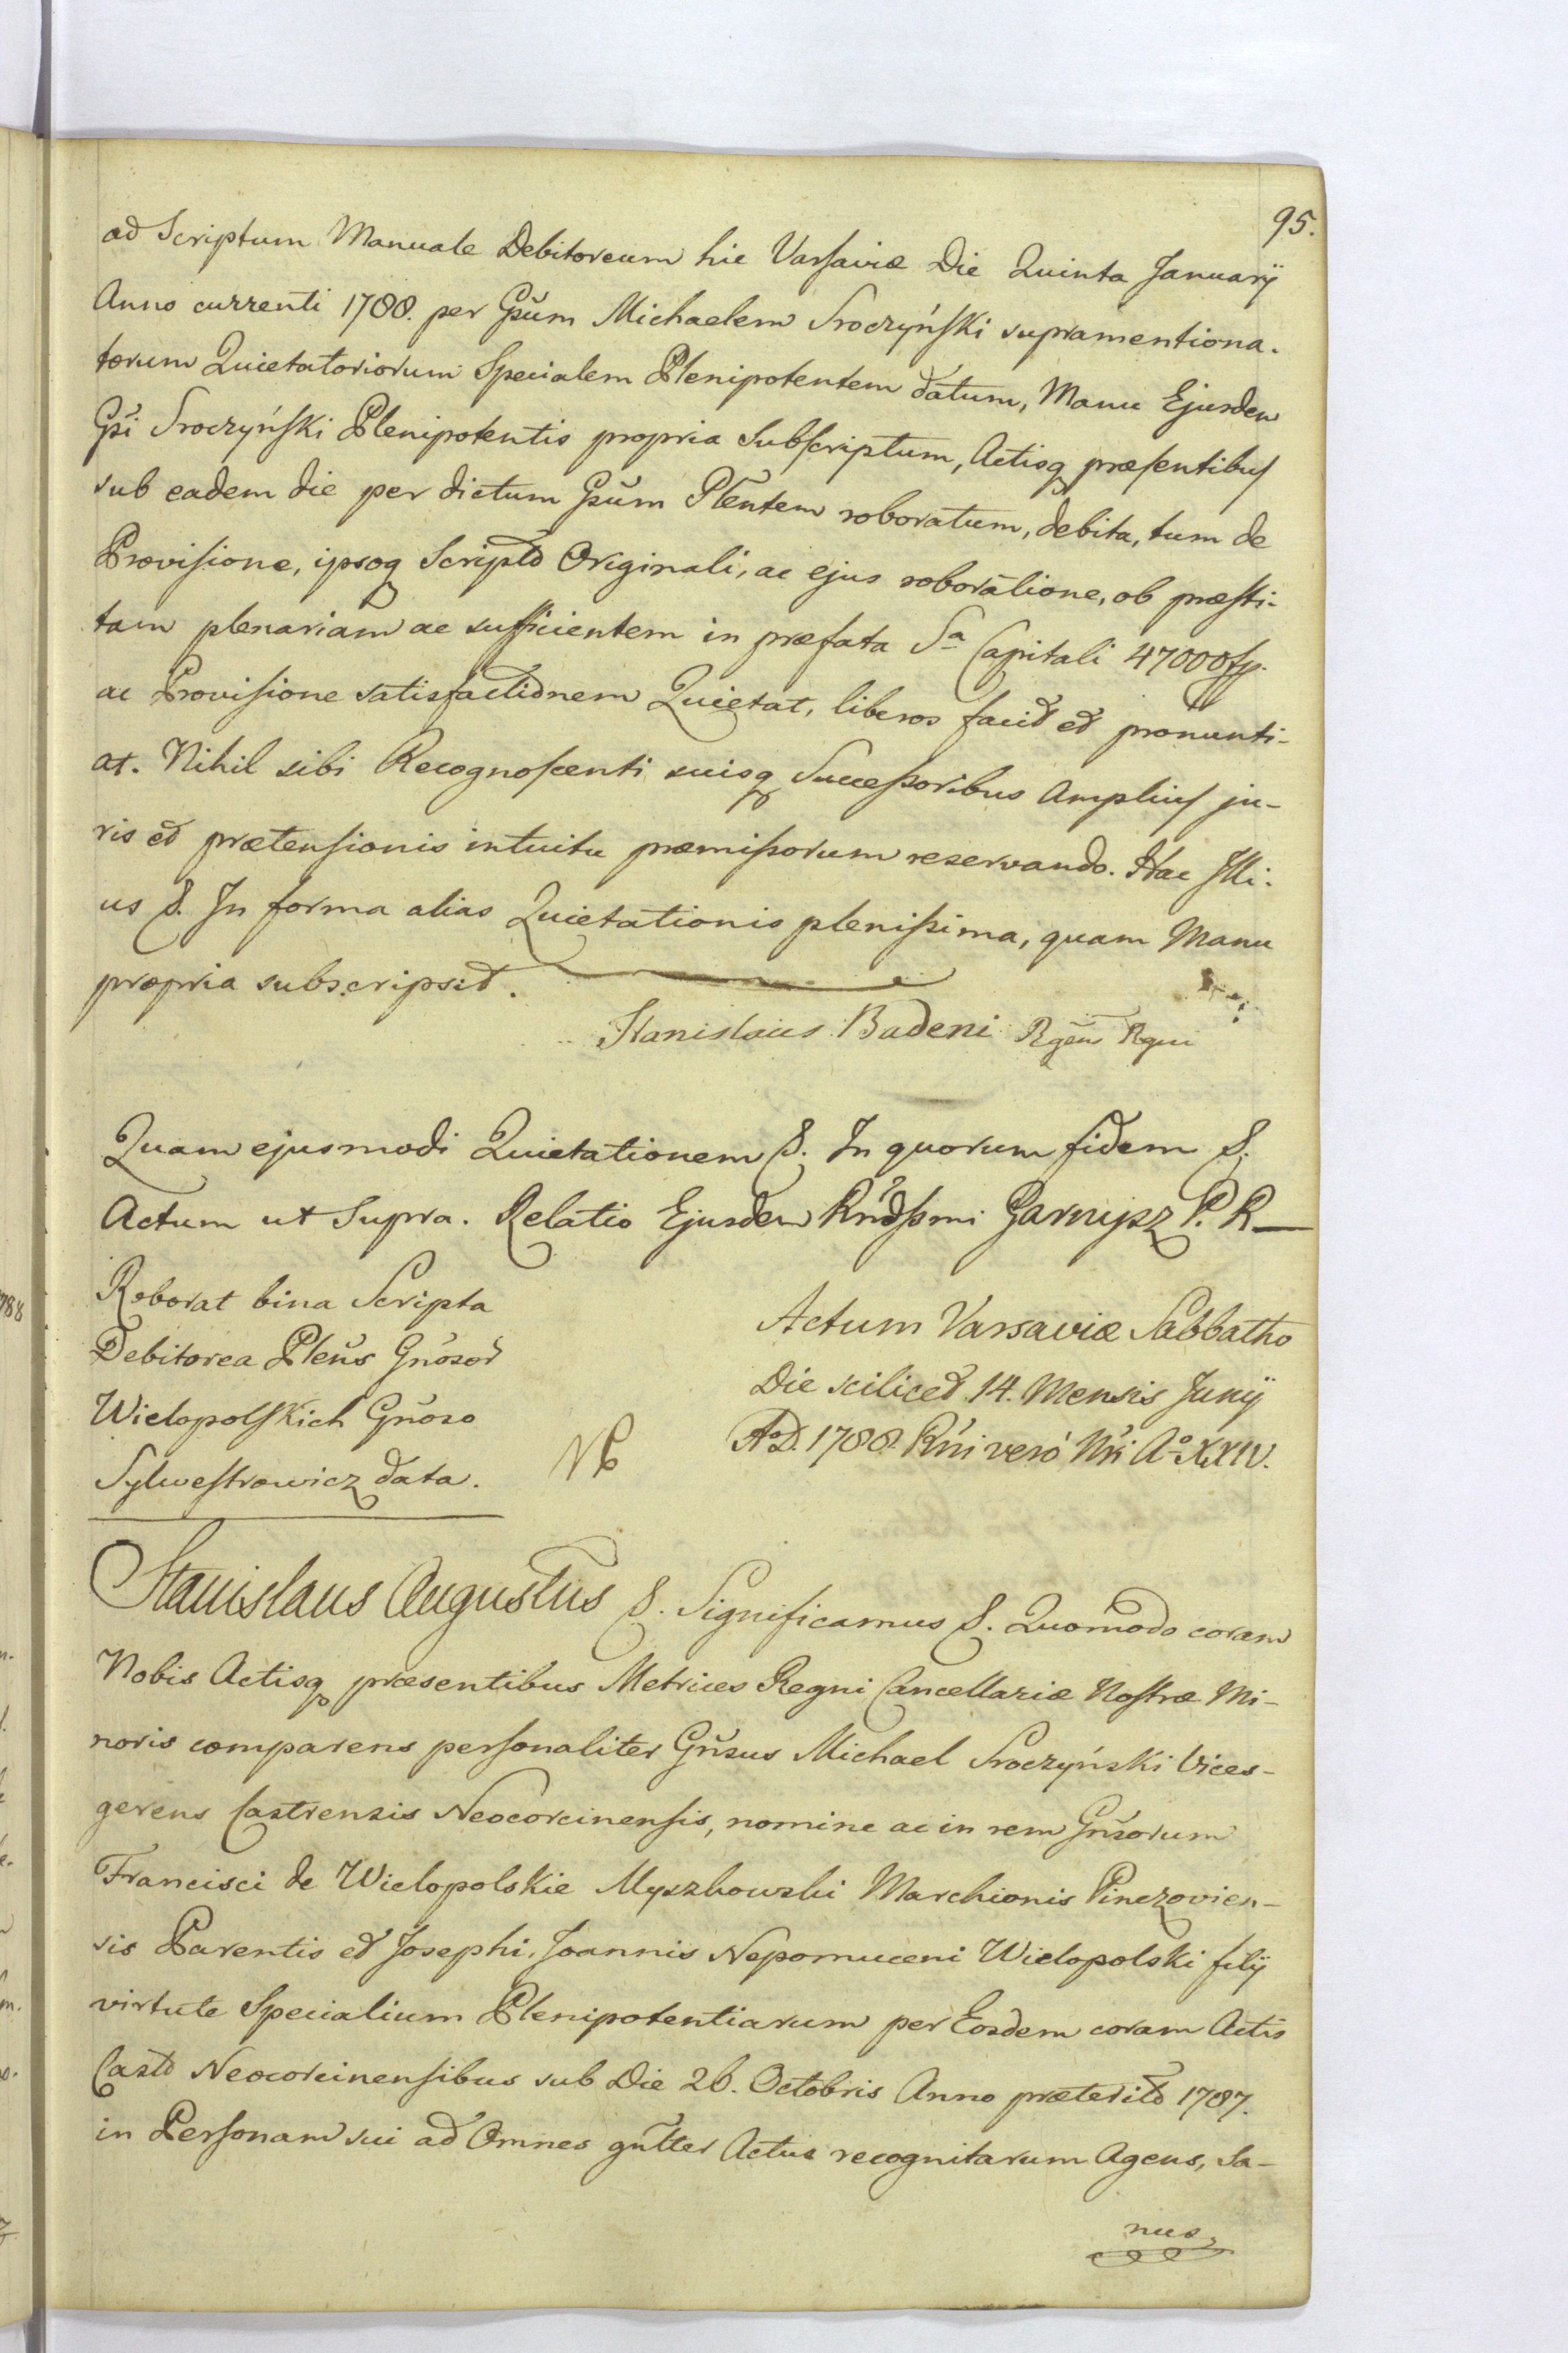 95.
ad Scriptum Manuale Debitoreum hic Varsaviæ Die Quinta Januarÿ
Anno currenti 1788. per Gsũm Michaelem Sroczyński supramentiona-
torum Quietatoriorum Specialem Plenipotentem datum, Manu Ejusdem
Gsĩ Sroczyński Plenipotentis propria Subscriptum, Actisq præsentibus
sub eadem die per dictum Gsũm Plẽntem roboratum, debita, tum de
Provisione, ipsoq Scripto Originali, ac ejus roboratione, ob præsti-
tam plenariam ac sufficientem in præfata Sa Capitali 47000 fp.
ac Provisione satisfactionem Quietat, liberos facit et pronunti-
at. Nihil sibi Recognoscenti suisq Successoribus Amplius ju-
ris et prætensionis intuitu præmissorum reservando. Hac Illi-
us &. In forma alias Quietationis plenissima, quam Manu
propria subscripsit.
Stanislaus Badeni Rgẽns Rgni
Quam ejusmodi Quietationem &. In quorum fidem &.
Actum ut Supra. Relatio Ejusdem Rṅdssmi Garnysz P. R
Roborat bina Scripta
Debitorea Plẽns Gnosor
Wielopolskich Gnoso
Sylwestrowicz data.
NB
Actum Varsaviæ Sabbatho
Die scilicet 14. Mensis Junÿ
A.D. 1788. Rṅi vero Nri Ao XXIV.
Stanislaus Augustus &. Significamus &. Quomodo coram
Nobis Actisq præsentibus Metrices Regni Cancellariæ Nostræ Mi-
noris comparens personaliter Gnsus Michael Sroczyński Vices-
gerens Castrensis Neocorcinensis, nomine ac in rem Gnsorum
Francisci de Wielopolskie Myszkowski Marchionis Pinczovien-
sis Parentis et Josephi, Joannis Nepomuceni Wielopolski filÿ
virtute Specialium Plenipotentiarum per Eosdem coram Actis
Castr Neocorcinensibus sub Die 26. Octobris Anno præterito 1787.
in Personam sui ad Omnes gñtter Actus recognitarum Agens, Sa-
nus